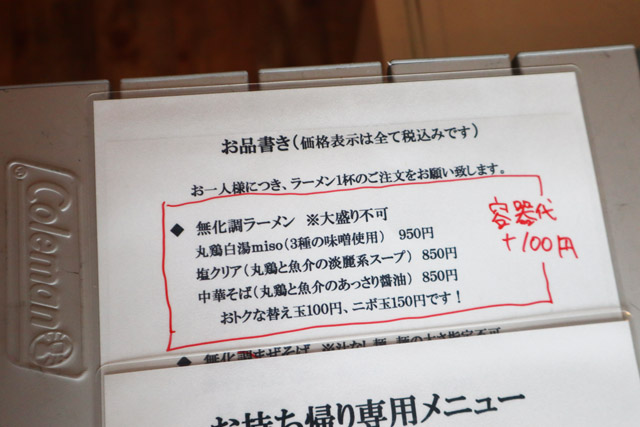 お品書き(価格表示は全て税込みです)
お一人様につき、ラーメン1杯のご注文をお願い致します。
◆ 無化調ラーメン ※大盛り不可
丸鶏白湯miso(3種の味噌使用) 950円
塩クリア(丸鶏と魚介の淡麗系スープ) 850円
中華そば(丸鶏と魚介のあっさり醤油) 850円
おトクな替え玉100円、ニボ玉150円です!
容器代
+100円
◆ 無化調まぜそば ※汁なし麺 麺の大き指定不可
お持ち帰り専用メニュー
Coleman®